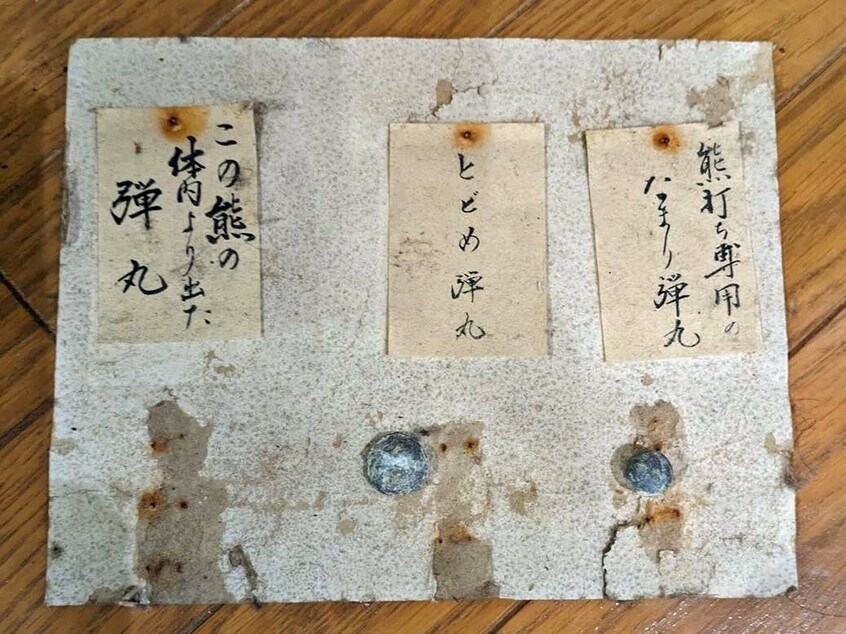 熊打ち専用の
なまり弾丸
とどめ弾丸
この熊の
体内より出た
弾丸